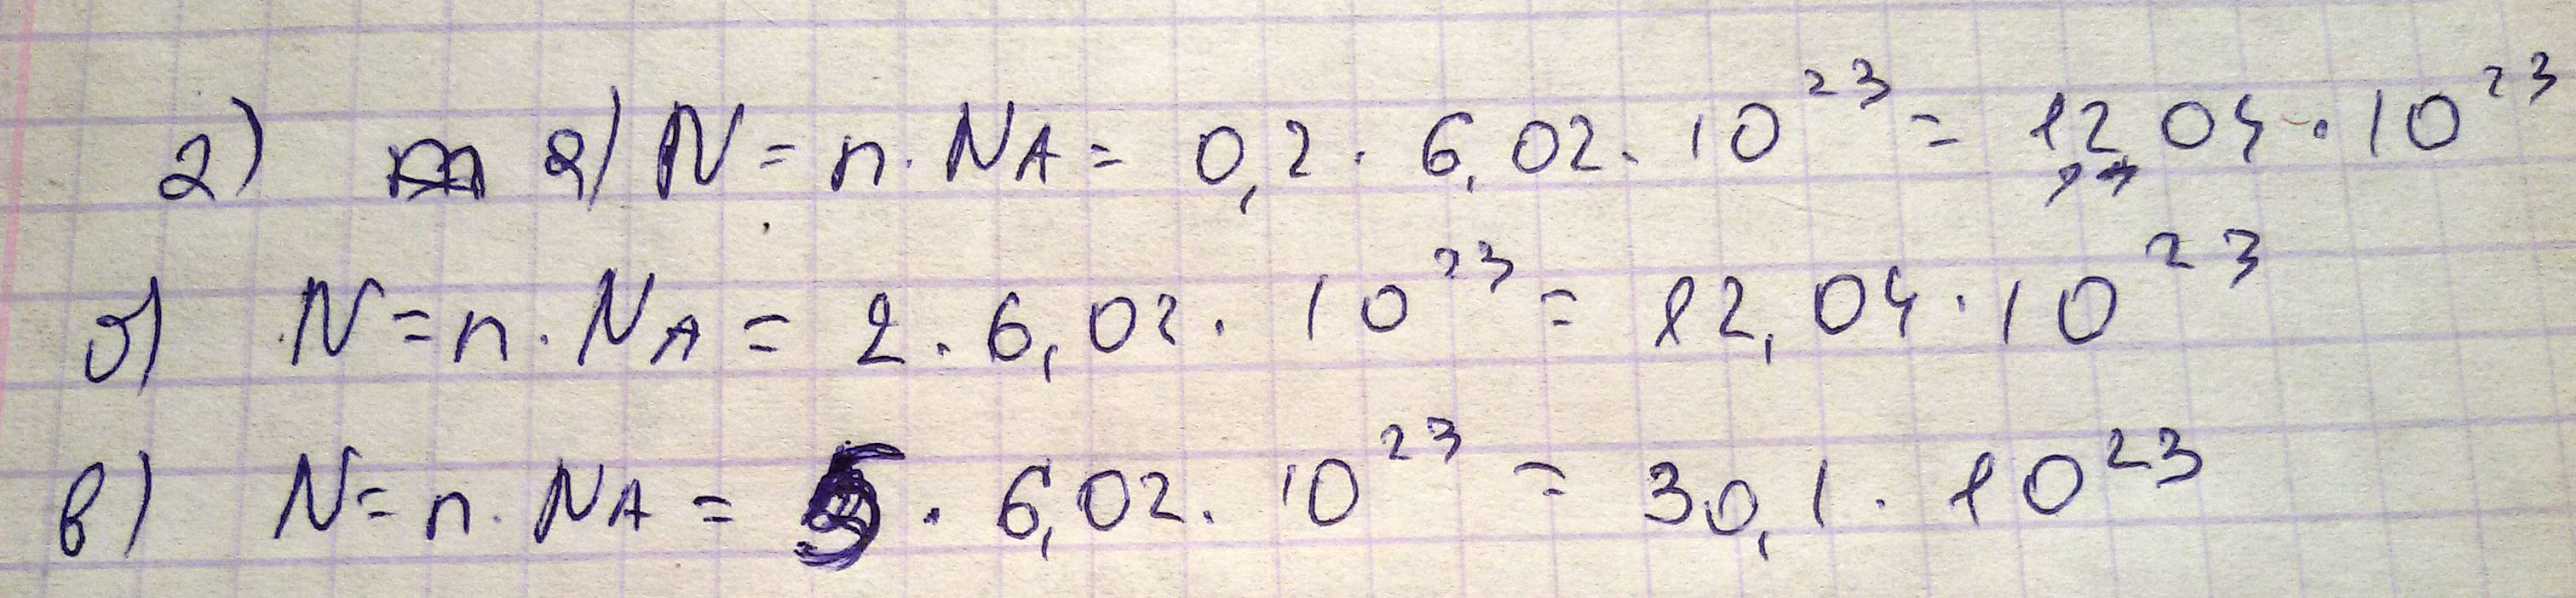 2) а) N = n · NA = 0,2 · 6,02 · 10²³ = 1,204 · 10²³
б) N = n · NA = 2 · 6,02 · 10²³ = 12,04 · 10²³
в) N = n · NA = 5 · 6,02 · 10²³ = 30,1 · 10²³